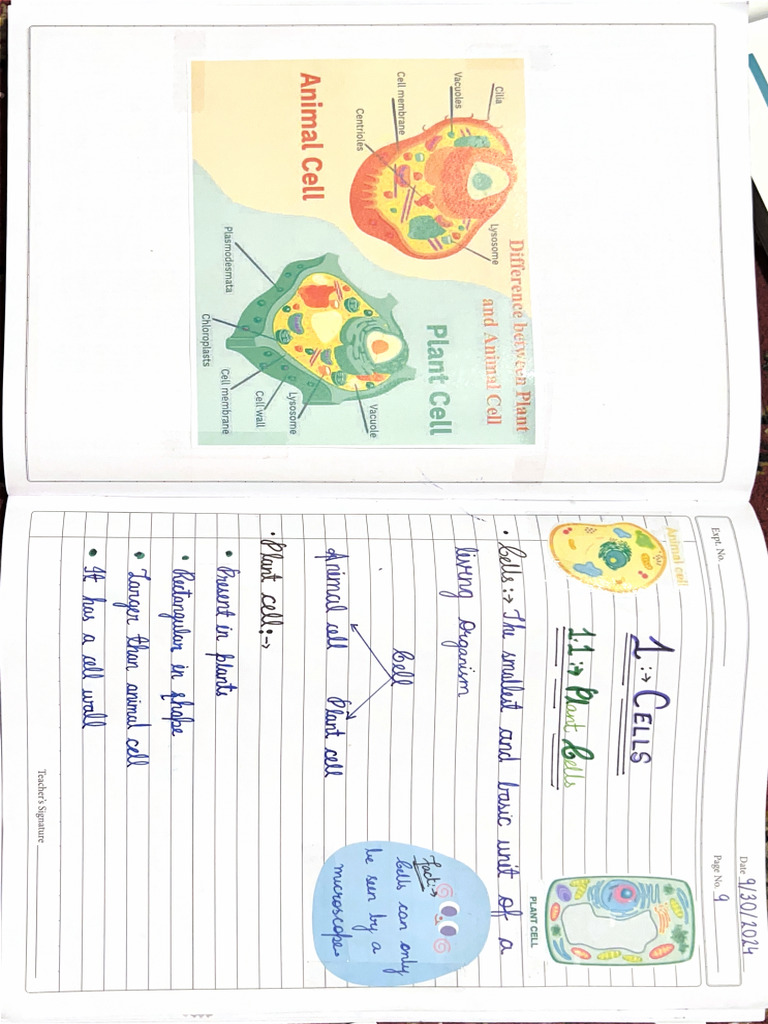 Difference between Plant
and Animal Cell
Animal Cell
Cilia
Vacuoles
Cell membrane
Centrioles
Lysosome
Plant Cell
Plasmodesmata
Chloroplasts
Cell membrane
Cell wall
Lysosome
Vacuole
Expt. No.
Date 9/30/2024
Page No. 9
Animal cell
1 :→ CELLS
1.1 :→ Plant Cells
PLANT CELL
• Cells :→ The smallest and basic unit of a
living organism
Cell
Animal cell Plant cell
Fact :→
Cells can only
be seen by a
microscope.
• Plant cell :→
• Present in plants
• Rectangular in shape
• Larger than animal cell
• It has a cell wall
Teacher's Signature